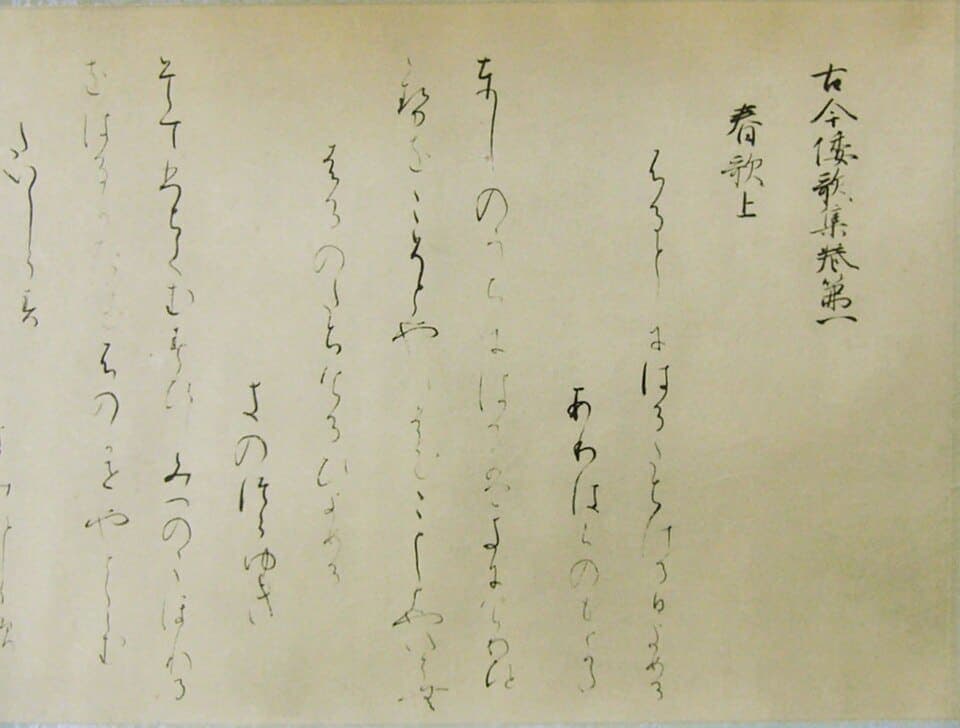 古今倭歌集巻第一
春歌上
ふるとしにはるたちける日よめる
ありはらのもとかた
としのうちにはるはきにけりひと
とせをこそとやいはむことしとやいはむ
はるのたちける日よめる
きのつらゆき
そてひちてむすひしみつのこほれる
をはるたつけふのかせやとくらむ
たいしらす